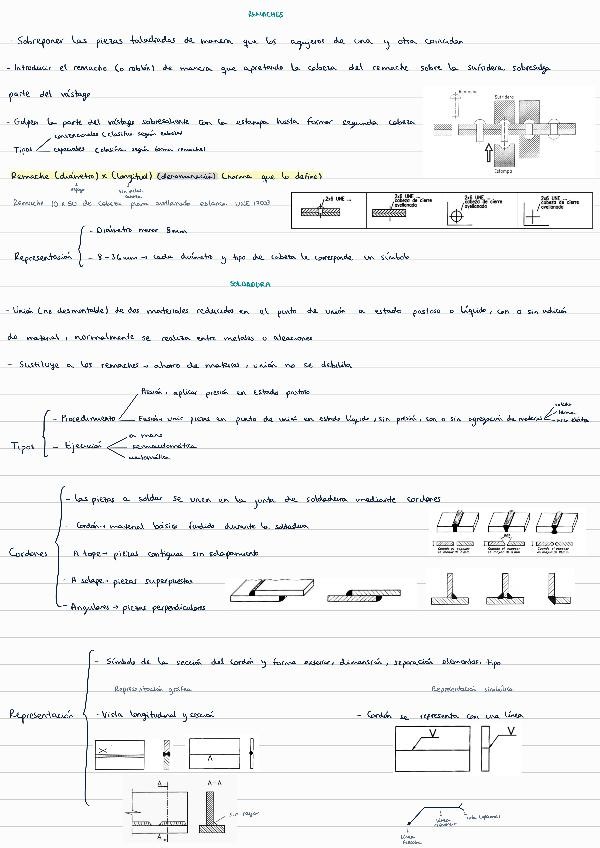 REMACHES
- Sobreponer las piezas taladradas de manera que los agujeros de una y otra coincidan
- Introducir el remache (o roblón) de manera que apretando la cabeza del remache sobre la sufridera sobresalga
parte del vástago
- Golpea la parte del vástago sobresaliente con la estampa hasta formar segunda cabeza
Tipos
convencionales (clasifica según cabeza)
especiales (clasifica según forma remache)
Sufridera
Estampa
Remache (diámetro) x (longitud) (denominación) (norma que lo define)
Remache 10 x 50 de cabeza plana avellanada UNE 17003
2x6 UNE ...
2x6 UNE ...
cabeza de cierre
avellanada
2x6 UNE ...
cabeza de cierre
avellanada
2x6 UNE ...
cabeza de cierre
avellanada
Representación
- Diámetro menor 8mm
- 8-36mm → cada diámetro y tipo de cabeza le corresponde un símbolo
SOLDADURA
- Unión (no desmontable) de dos materiales reducidos en el punto de unión a estado pastoso o líquido, con o sin adición
de material, normalmente se realiza entre metales o aleaciones
- Sustituye a los remaches → ahorro de material, unión no se debilita
Tipos
- Procedimiento
Presión, aplicar presión en estado pastoso
Fusión, unir piezas en punto de unión en estado líquido, sin presión, con o sin agregación de material
- Ejecución
a mano
semiautomática
automática
Cordones
- Las piezas a soldar se unen en la junta de soldadura mediante cordones
Cordón, material básico fundido durante la soldadura
A tope → piezas contiguas sin solapamiento
- A solape, piezas superpuestas
- Angulares → piezas perpendiculares
Representación
- Símbolo de la sección del cordón y forma exterior, dimensión, separación elementos, tipo
Representación gráfica
Representación simbólica
- Vista longitudinal y sección
- Cordón se representa con una línea
A
A-A
A
sin rayar
línea
flecha
línea
referencia
cola (opcional)